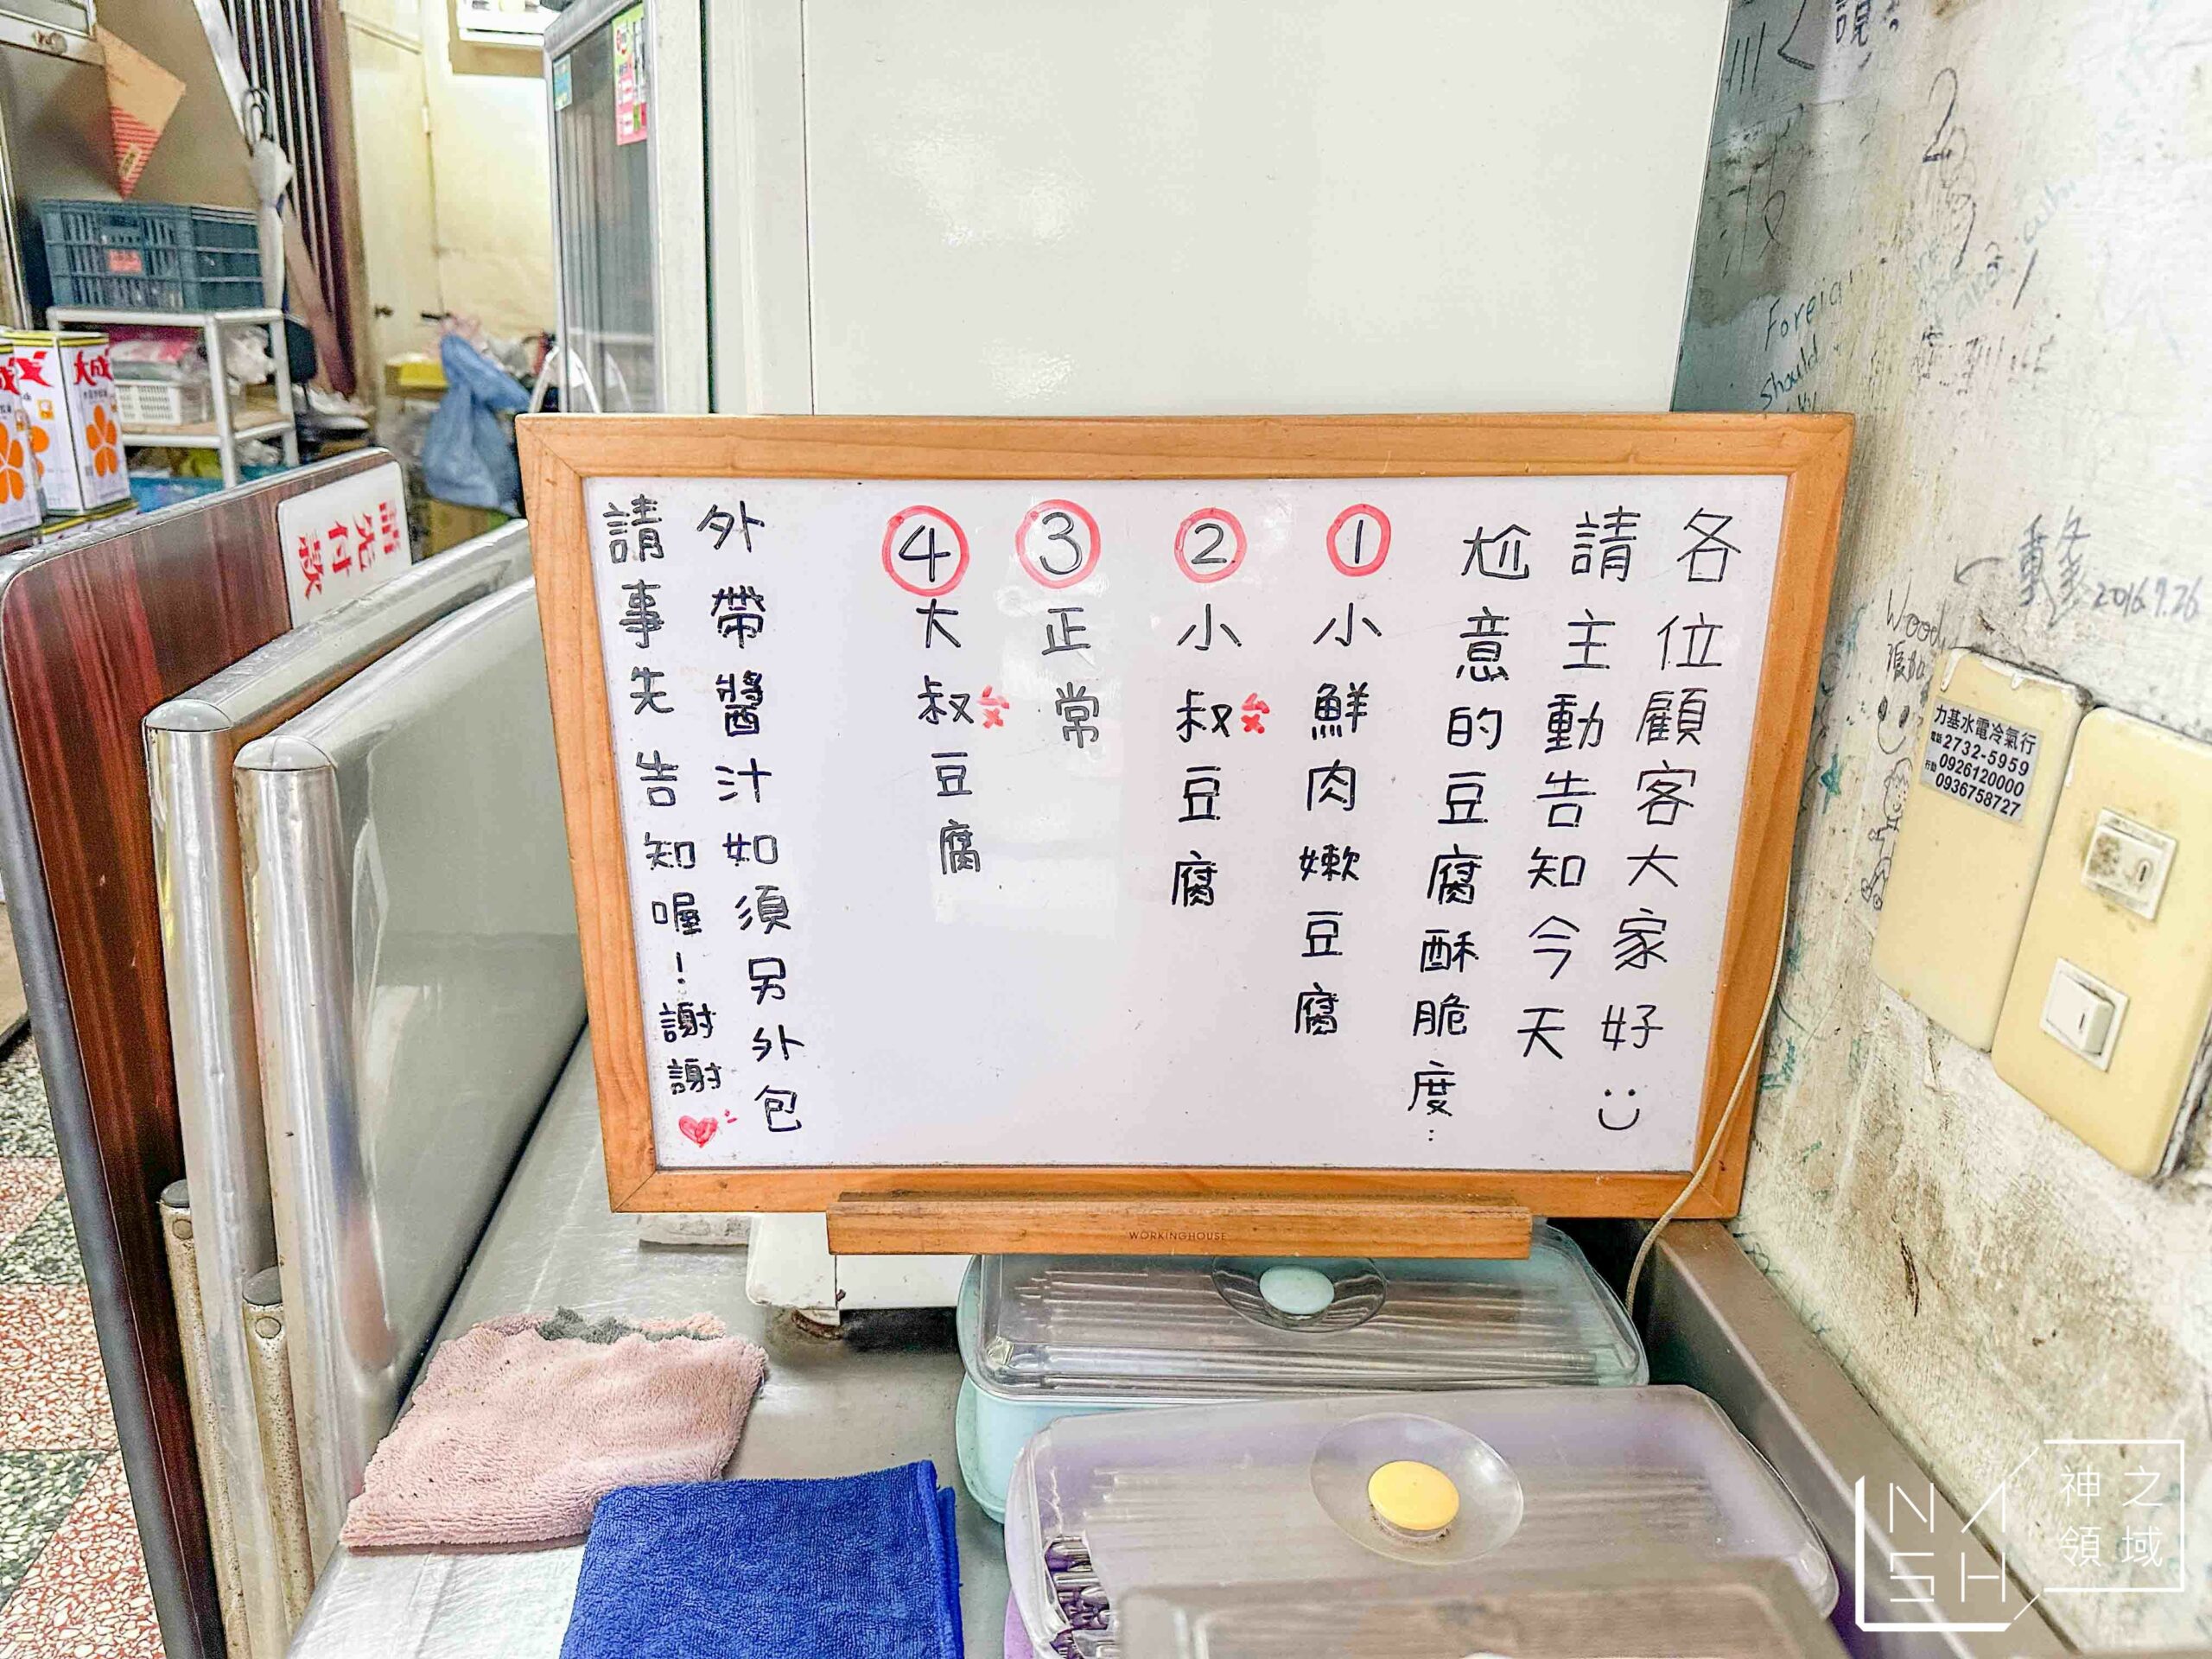 各位顧客大家好
請主動告知今天
尬意的豆腐酥脆度:
①小鮮肉嫩豆腐
②小叔豆腐
③正常
④大叔豆腐
外帶醬汁如須另外包
請事先告知喔!謝謝
WORKINGHOUSE
請先付款
大成
說:
Foreign
should
2016.9.26
Woody
力基水電冷氣行
電話2732-5959
行動0926120000
0936758727
NASH
神之領域